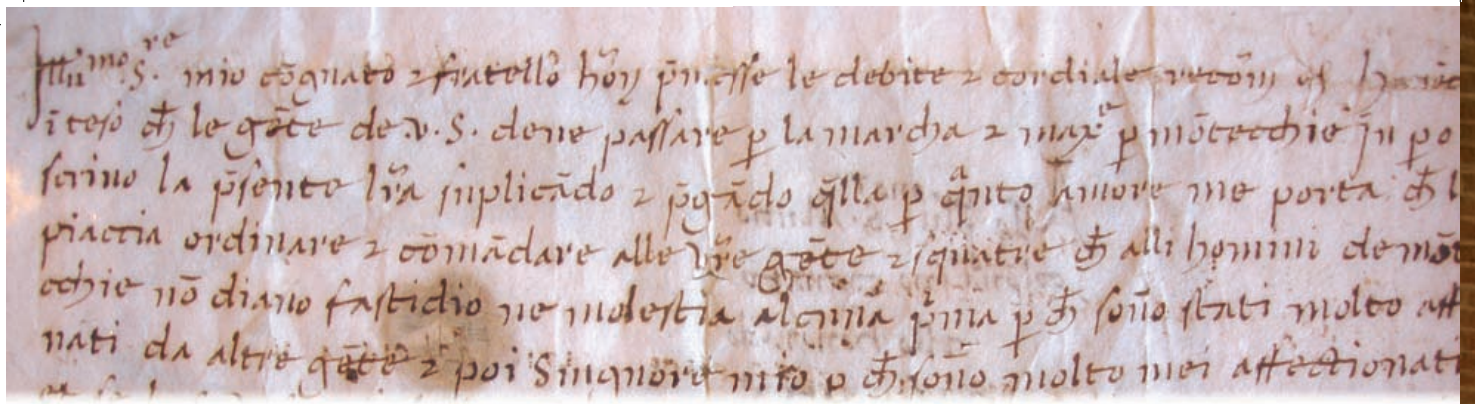 Illu^mo. S.^re mio cōgnato & fratello hon̄ p̄misse le debite & cordiale recōm
īteso ch̄ le gēte de .v.S. deve passare ꝑ la marcha & max^e ꝑ mōtecchie ꝑo
scrivo la p̄sente lr̄a suplicādo & p̄gādo q̄lla ꝑ q^anto amore me porta ch̄
piaccia ordinare & comādare alle vr̄e gēte & squatre ch̄ alli homini de
cchie nō diano fastidio ne molestia alcuna p^ima ꝑ ch̄ sono stati molto
nati da altre gēte & poi Singnōre mio ꝑ ch̄ sono molto mei affectionati